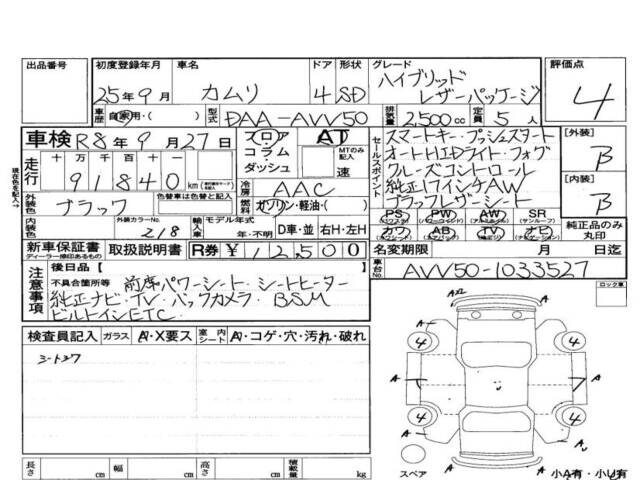 出品番号 初度登録年月 車名 ドア 形状 グレード 評価点
25年9月 カムリ 4 SD ハイブリッド レザーパッケージ 4
車歴 自家用・( ) 型式 DAA-AVV50 排気量 2500cc 定員 5人
車検 R8年9月27日 フロア コラム・ダッシュ AT MTのみ記入 速
セールスポイント
スマートキー・プッシュスタート
オートHIDライト・フォグ
クルーズコントロール
純正17インチAW
ブラックレザーシート
[外装] B
[内装] B
現在の km を記入→
走行 十万 万 千 百 十 一
91840 km
冷房 AAC
外装色 ブラック 色替車は色替と記入 燃料 ガソリン・軽油・( )
内装色 外装カラーNo. 218 輸入車 モデル年式 年・不明 D車・並 右H・左H
PS (パワーステアリング) PW (パワーウインド) AW (アルミホイル) SR (サンルーフ)
カワ (革シート) AB (エアバッグ) TV (テレビ) ナビ (ナビゲーション)
純正品のみ丸印
新車保証書 ディーラー捺印あるもの 取扱説明書 R券 ¥12500
名変期限 月 日迄
車台No. AVV50-1033527
注意事項
後日品【
不具合箇所等 前席パワーシート・シートヒーター
純正ナビ・TV・バックカメラ・BSM
ビルトインETC 】
ロック車
検査員記入 ガラス A・X要ス 室内シート A・コゲ・穴・汚れ・破れ
シートスワ
AU
A A
4 4
A A
4 4
A A
U
スペア A 小A有・小U有
長さ cm 幅 cm 高さ cm 積載量 kg